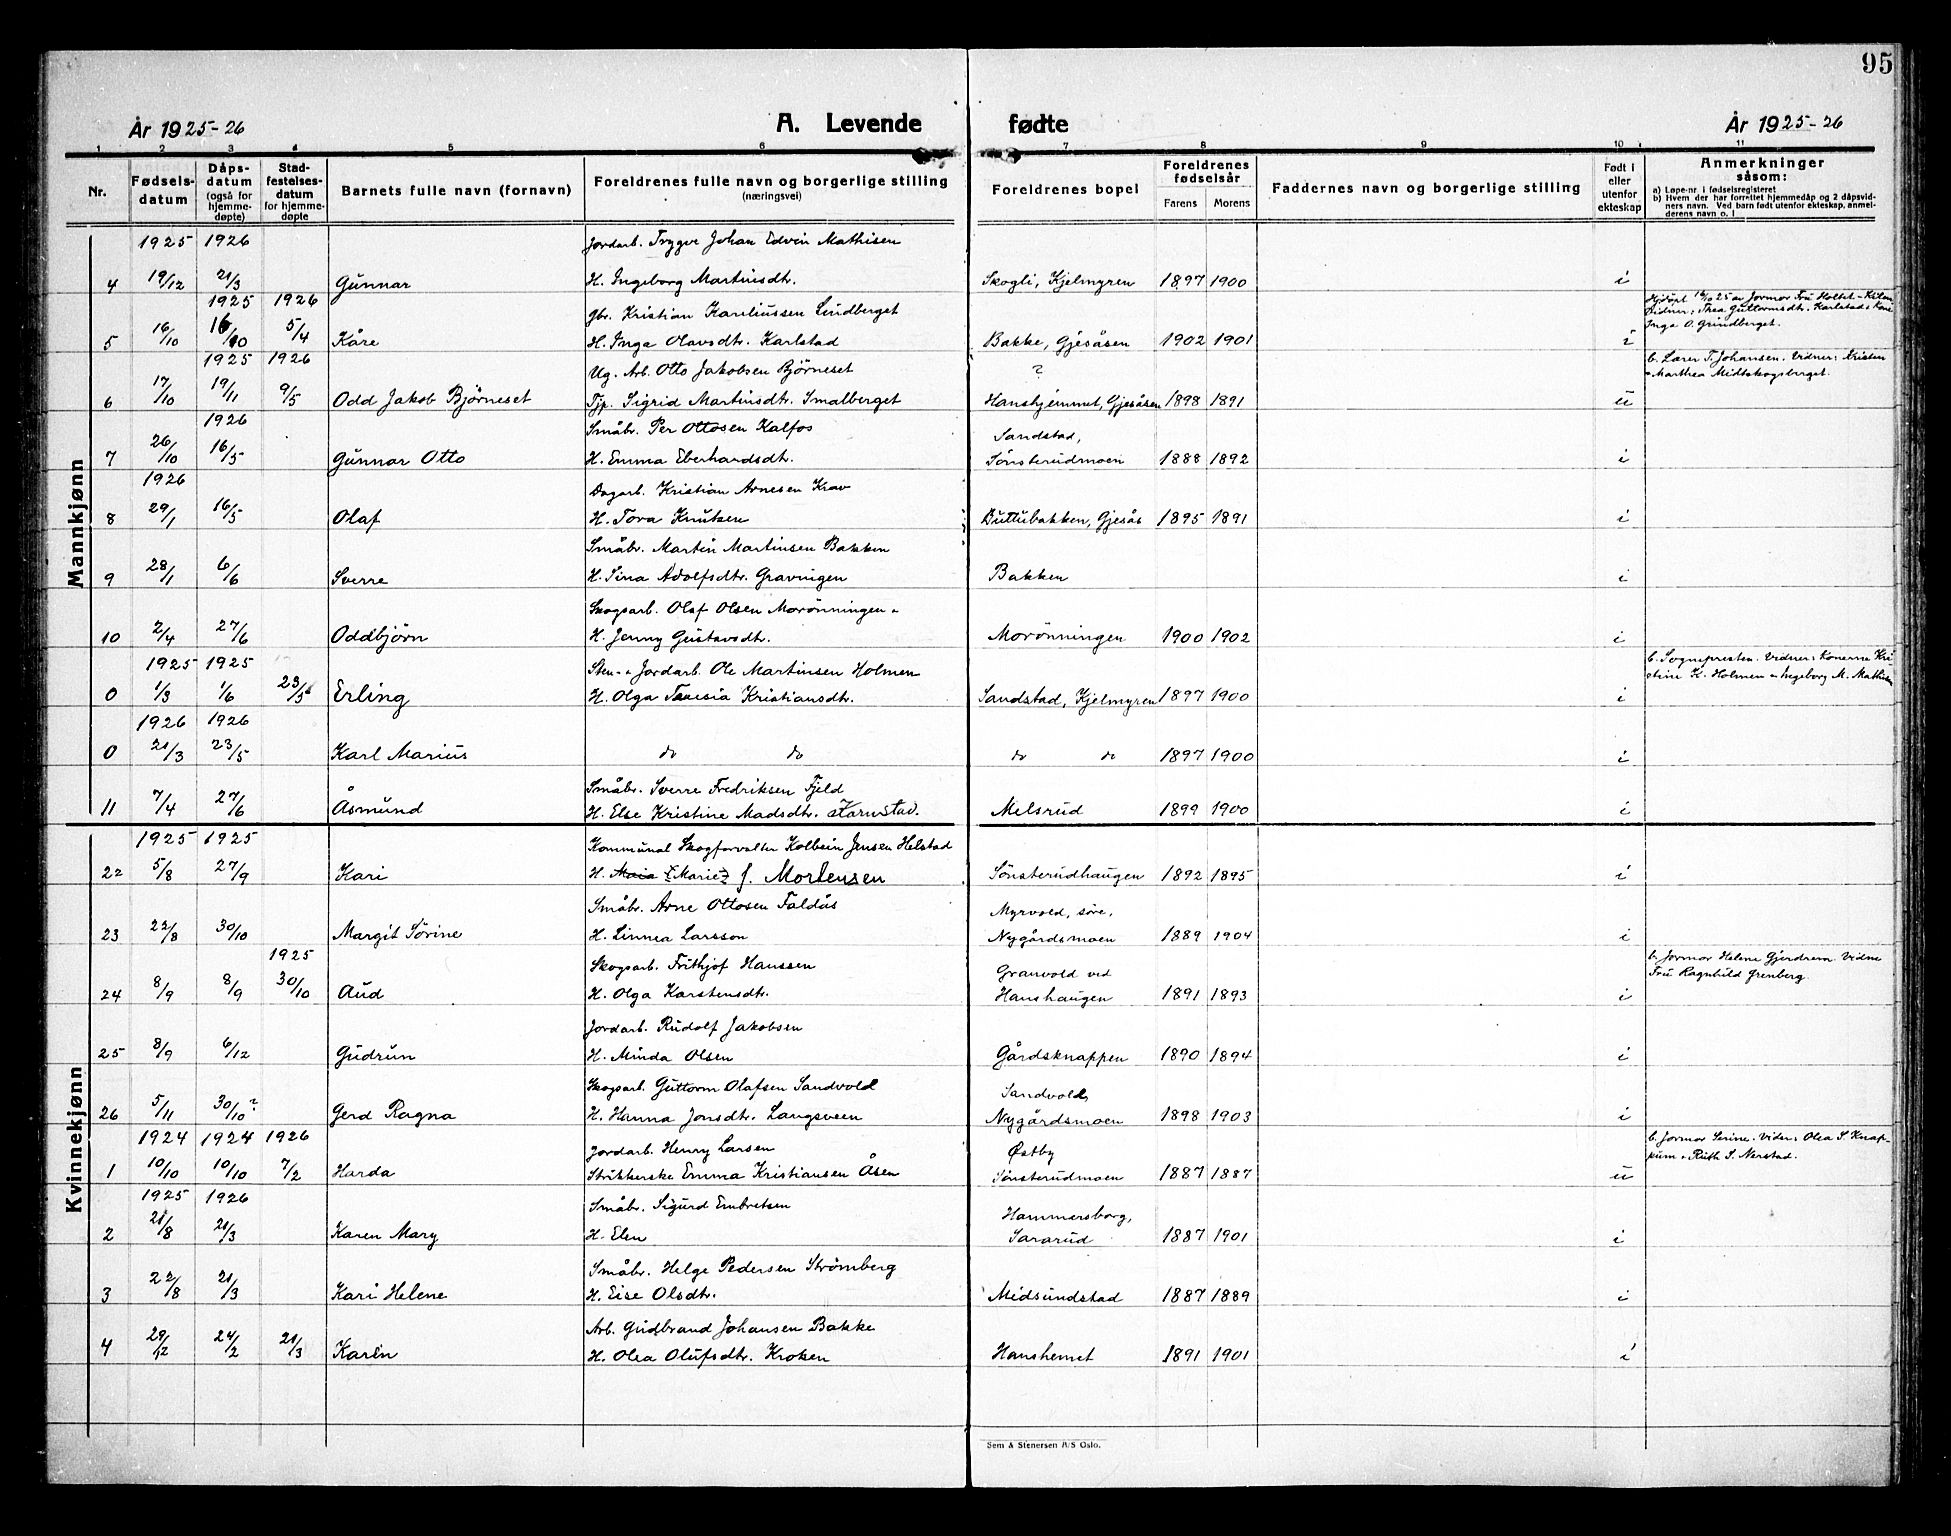 95
År 1925-26
A. Levende
fødte
År 1925-26
1 2 3 4 5 6 7 8 9 10 11
Nr. Fødselsdatum Dåpsdatum (også for hjemmedøpte) Stadfestelsesdatum for hjemmedøpte Barnets fulle navn (fornavn) Foreldrenes fulle navn og borgerlige stilling (næringsvei) Foreldrenes bopel Foreldrenes fødselsår Farens Morens Faddernes navn og borgerlige stilling Født i eller utenfor ekteskap Anmerkninger såsom:
a) Løpe-nr. i fødselsregisteret
b) Hvem der har forrettet hjemmedåp og 2 dåpsvidners navn. Ved barn født utenfor ekteskap, anmelderens navn o. l
Mannkjønn
1925 1926 Jordarb. Trygve Johan Edvin Mathisen
4 19/12 21/3 Gunnar H. Ingeborg Martinsdtr. Skogli, Kjelmyren 1897 1900 i
1925 1926 Gbr. Kristian Kareliussen Lindberget Hjdøpt 16/10 25 av Jormor Fru Holtet-Kilen
Vidner: Thea Guttormsdtr. Karlstad, Kone
Inga O. Grindberget.
5 16/10 16/10 5/4 Kåre H. Inga Olavsdtr. Karlstad Bakke, Gjesåsen 1902 1901 i
1925 1926 Ug. Arb. Otto Jakobsen Bjørneset ? b. Lærer T. Johansen. Vidner: Kristen
Marthea Midtskogsberget.
6 17/10 19/11 9/5 Odd Jakob Bjørneset Tjp. Sigrid Martinsdtr. Smalberget Hanshjemmet, Gjesåsen 1898 1891 u
1926 Småbr. Per Ottosen Kalfos Sandstad,
7 26/10 16/5 Gunnar Otto H. Emma Eberhardsdtr. Sønsterudmoen 1888 1892 i
1926 Dagarb. Kristian Arnesen Krav
8 29/1 16/5 Olaf H. Tora Knutsen Buttubakken, Gjesås 1895 1891 i
Småbr. Martin Martinsen Bakken
9 28/1 6/6 Sverre H. Sina Adolfsdtr. Gravningen Bakken i
Skogsarb. Olaf Olsen Morønningen
10 2/4 27/6 Oddbjörn H. Jenny Gustavsdtr. Morønningen 1900 1902 i
1925 1925 Sten- & Jordarb. Ole Martinsen Holmen b. Sognepresten. Vidner: Konerne Kri-
stine K. Holmen & Ingeborg M. Mathisen
0 1/3 1/6 23/5 Erling H. Olga Teresia Kristiansdtr. Sandstad, Kjelmyren 1897 1900 i
1926 1926
0 21/3 23/5 Karl Marius do do do do 1897 1900 i
Småbr. Sverre Fredriksen Fjeld
11 7/4 27/6 Åsmund H. Else Kristine Madsdtr. Karnstad. Melsrud 1899 1900 i
Kvinnekjønn
1925 1925 Kommunal Skogforvalter Kolbein Jensen Helstad
22 5/8 27/9 Kari H. Maia (Marie) f. Mortensen Sønsterudhaugen 1892 1895 i
Småbr. Arne Ottosen Faldås Myrvold, söre,
23 22/8 30/10 Margit Sörine H. Linnea Larsson Nygårdsmoen 1889 1904 i
1925 Skogsarb. Frithjof Hanssen Granvold ved b. Jormor Helene Gjerdrem. Vidne
Fru Ragnhild Grenberg.
24 8/9 8/9 30/10 Aud H. Olga Karstensdtr. Hanshaugen 1891 1893 i
Jordarb. Rudolf Jakobsen
25 8/9 6/12 Gudrun H. Minda Olsen Gårdsknappen 1890 1894 i
Skogsarb. Guttorm Olafsen Sandvold Sandvold,
26 5/11 30/10? Gerd Ragna H. Hanna Jonsdtr. Langsveen Nygårdsmoen 1898 1903 i
1924 1924 1926 Jordarb. Henry Larsen Østby b. Jormor Serine. Vidner: Olea S. Knap-
pum & Ruth S. Nerstad.
1 10/10 10/10 7/2 Harda Strikkerske Emma Kristiansen Åsen Sønsterudmoen 1887 1887 u
1925 1926 Småbr. Sigurd Embretsen Hammersborg,
2 21/8 21/3 Karen Mary H. Elen Sararud 1887 1901 i
Småbr. Helge Pedersen Strömberg
3 22/8 21/3 Kari Helene H. Eise Olsdtr. Midsundstad 1887 1889 i
Arb. Gudbrand Johansen Bakke
4 29/12 24/2 21/3 Karin H. Olea Olufsdtr. Kroken Hanshemet 1891 1901 i
Sem & Stenersen A/S Oslo.